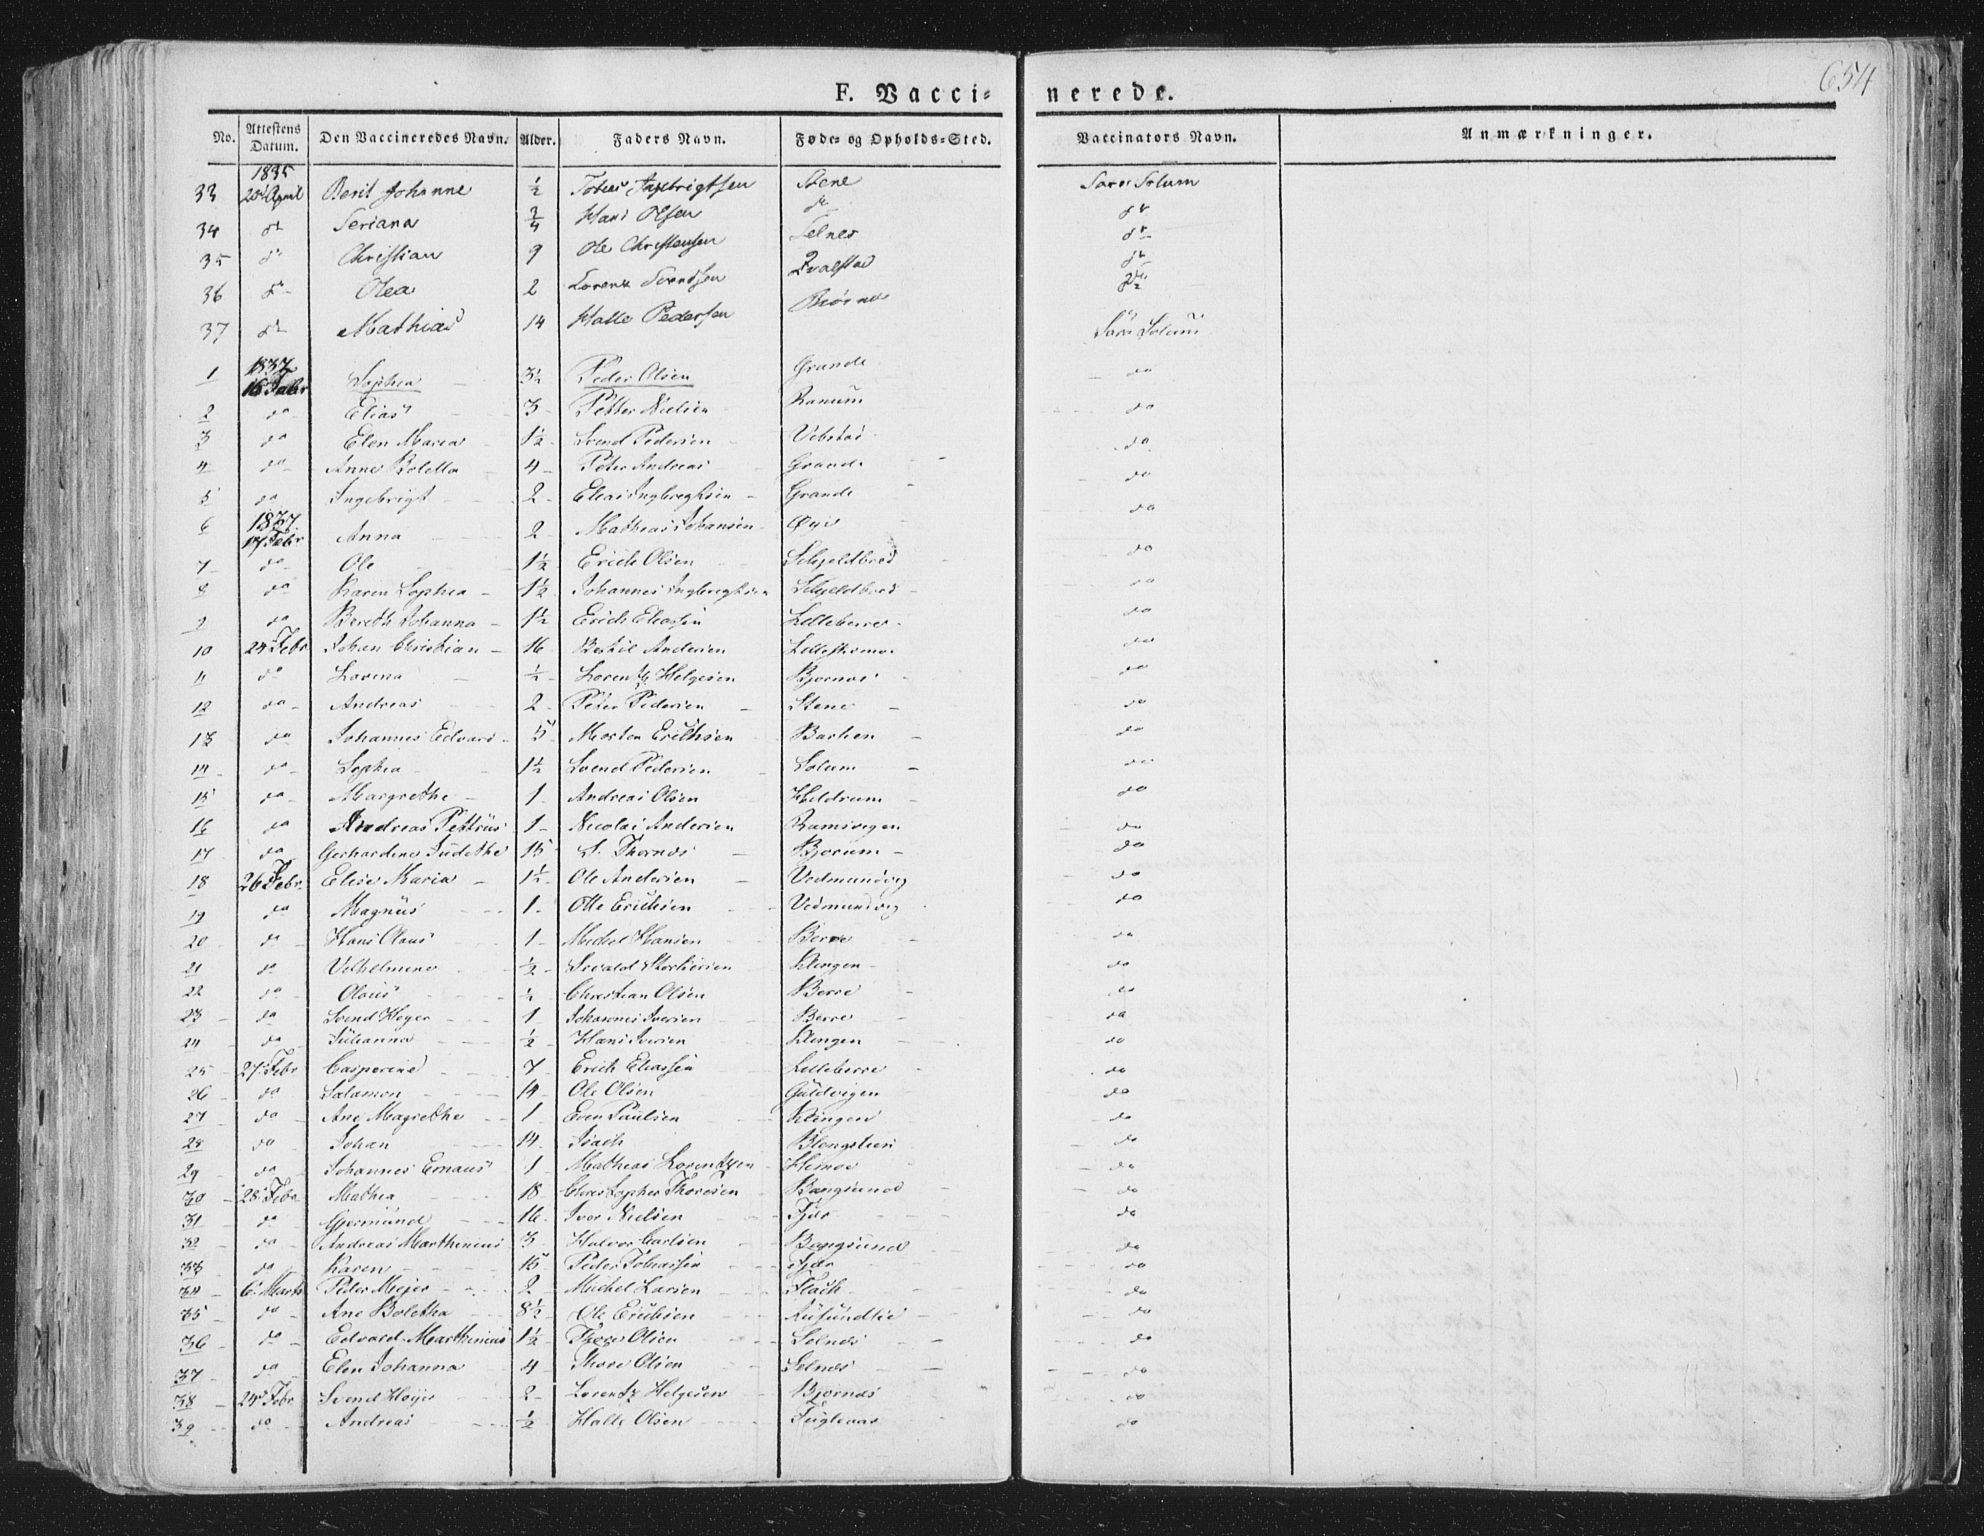 654
F. Vaccinerede.
No. Attestens Datum. Den Vaccineredes Navn. Alder. Faders Navn. Føde- og Opholds-Sted. Vaccinators Navn. Anmærkninger.
1835
33 20 April Berit Johanne ½ Stene Solum
34 do Seriana Hans Olsen do do
35 do Christian 9 Ole Christensen Selnes do
36 do Olea 2 Lorens Svendsen Qvalstad do
37 do Mathias 14 Halle Pedersen Biørnes Solum
1837
1 16 Febr Sophia 3½ Peder Olsen Grande do
2 do Elias 3 Petter Nielsen Ranum do
3 do Elen Maria 1½ Svend Pedersen Vibstad do
4 do Anne Boletta 4 Peter Andreas Grande do
5 do Ingebrigt 2 Elias Ingbreghsen Grande do
1837
6 17 Febr Anna 2 Mathias Johansen Øyie do
7 do Ole 1½ Erich Olsen Schjeldbred do
8 do Karen Sophia 1½ Johannes Ingbreghsen Schjeldbred do
9 do Bereth Johanna 1½ Erich Eliassen Lilleberre do
10 24 Febr Johan Christian 16 Bertil Andersen do
11 do Lorena ½ Lorentz Helgesen Bjornes do
12 do Andreas 2 Peter Pedersen Stene do
13 do Johannes Edvard 5 Morten Erichsen Barhen do
14 do Sophia 1½ Svend Pedersen Solum do
15 do Margrethe 1 Andreas Olsen Heldrum do
16 do Andreas Pettrus 1 Nicolai Andersen Ramsvigen do
17 do Gerhardine Judithe 15 Bjorum do
18 26 Febr Elise Maria 1½ Ole Andersen Vedmundvig do
19 do Magnus 1 Olle Erichsen Vedmundvig do
20 do Hans Olaus 1 Michel Hansen Berre do
21 do Vilhelmine ½ Sivald Klingen do
22 do Olaus ½ Christian Olsen Berre do
23 do Svend Høyer 1 Johannes Iversen Berre do
24 do Julianna ½ Hans Iversen Klingen do
25 27 Febr Casperine 7 Erich Eliassen Lilleberre do
26 do Salamon 14 Ole Olsen Guldvigen do
27 do Ane Magrethe 1 Even Paulsen Klingen do
28 do Johan 14 Isach do
29 do Johannes Emaus 1 Mathias Lorentzen do
30 28 Febr Mathea 18 Christopher Thoresen Bangsund do
31 do Gjermund 16 Iver Nielsen Fjær do
32 do Andreas Marthinius 3 Halvor Carlsen Bangsund do
33 do Karen 15 Peder Tobiassen Fjær do
34 6 Marts Peder Mejer 2 Michel Larsen Flach do
35 do Ane Boletha 8½ Ole Erichsen do
36 do Edvard Marthinius 1½ Thore Olsen Selnes do
37 do Elen Johanna 4 Thore Olsen Selnes do
38 24 Febr Svend Høyer 2 Lorentz Helgesen Bjornes do
39 do Andreas ½ Halle Olsen Fugleaas do